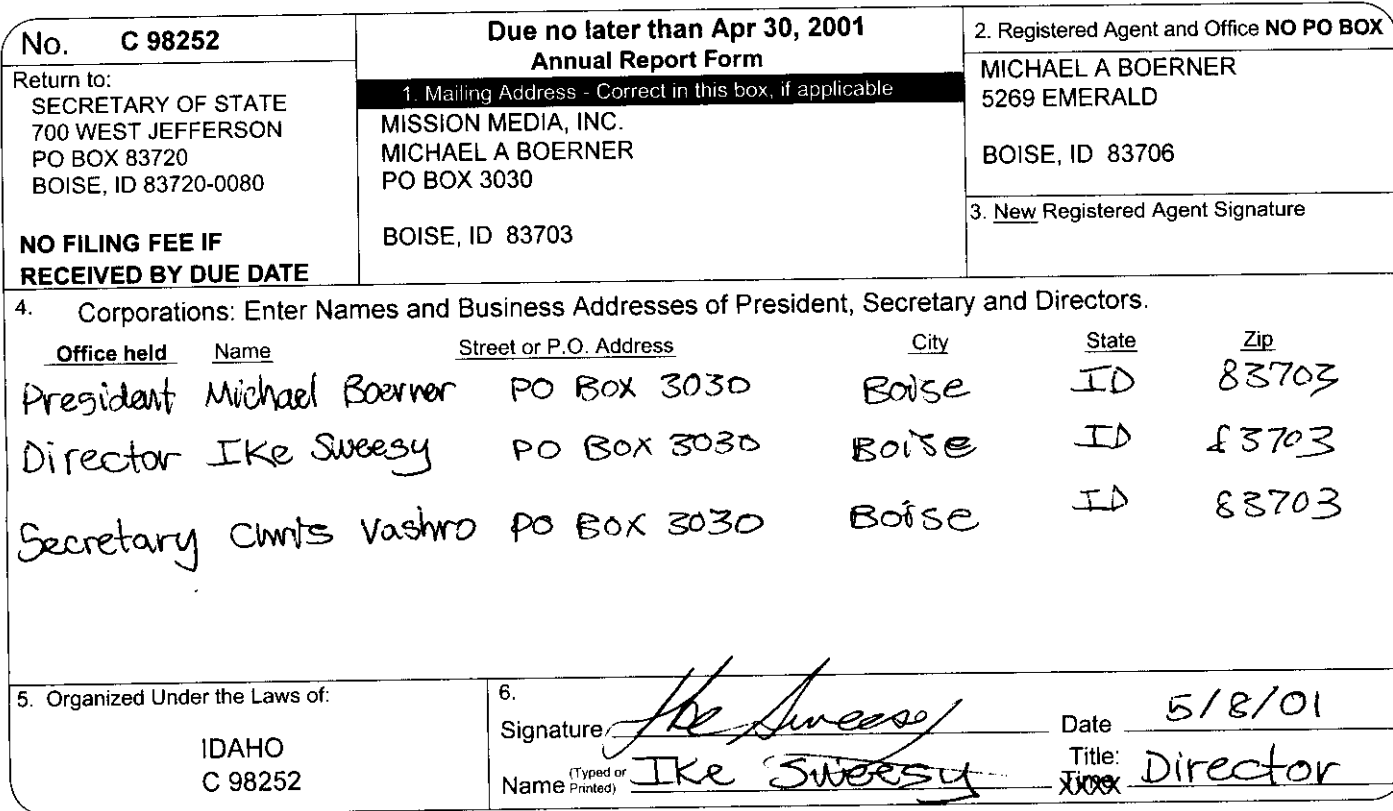 No. C 98252
Return to:
SECRETARY OF STATE
700 WEST JEFFERSON
PO BOX 83720
BOISE, ID 83720-0080
NO FILING FEE IF
RECEIVED BY DUE DATE
Due no later than Apr 30, 2001
Annual Report Form
1. Mailing Address - Correct in this box, if applicable
MISSION MEDIA, INC.
MICHAEL A BOERNER
PO BOX 3030
BOISE, ID 83703
2. Registered Agent and Office NO PO BOX
MICHAEL A BOERNER
5269 EMERALD
BOISE, ID 83706
3. New Registered Agent Signature
4. Corporations: Enter Names and Business Addresses of President, Secretary and Directors.
Office held Name Street or P.O. Address City State Zip
President Michael Boerner PO Box 3030 Boise ID 83703
Director Ike Sweesy PO Box 3030 Boise ID 83703
Secretary Chris Vashro PO Box 3030 Boise ID 83703
5. Organized Under the Laws of:
IDAHO
C 98252
6.
Signature Ike Sweesy Date 5/8/01
Name (Typed or Printed) Ike Sweesy Title: Director